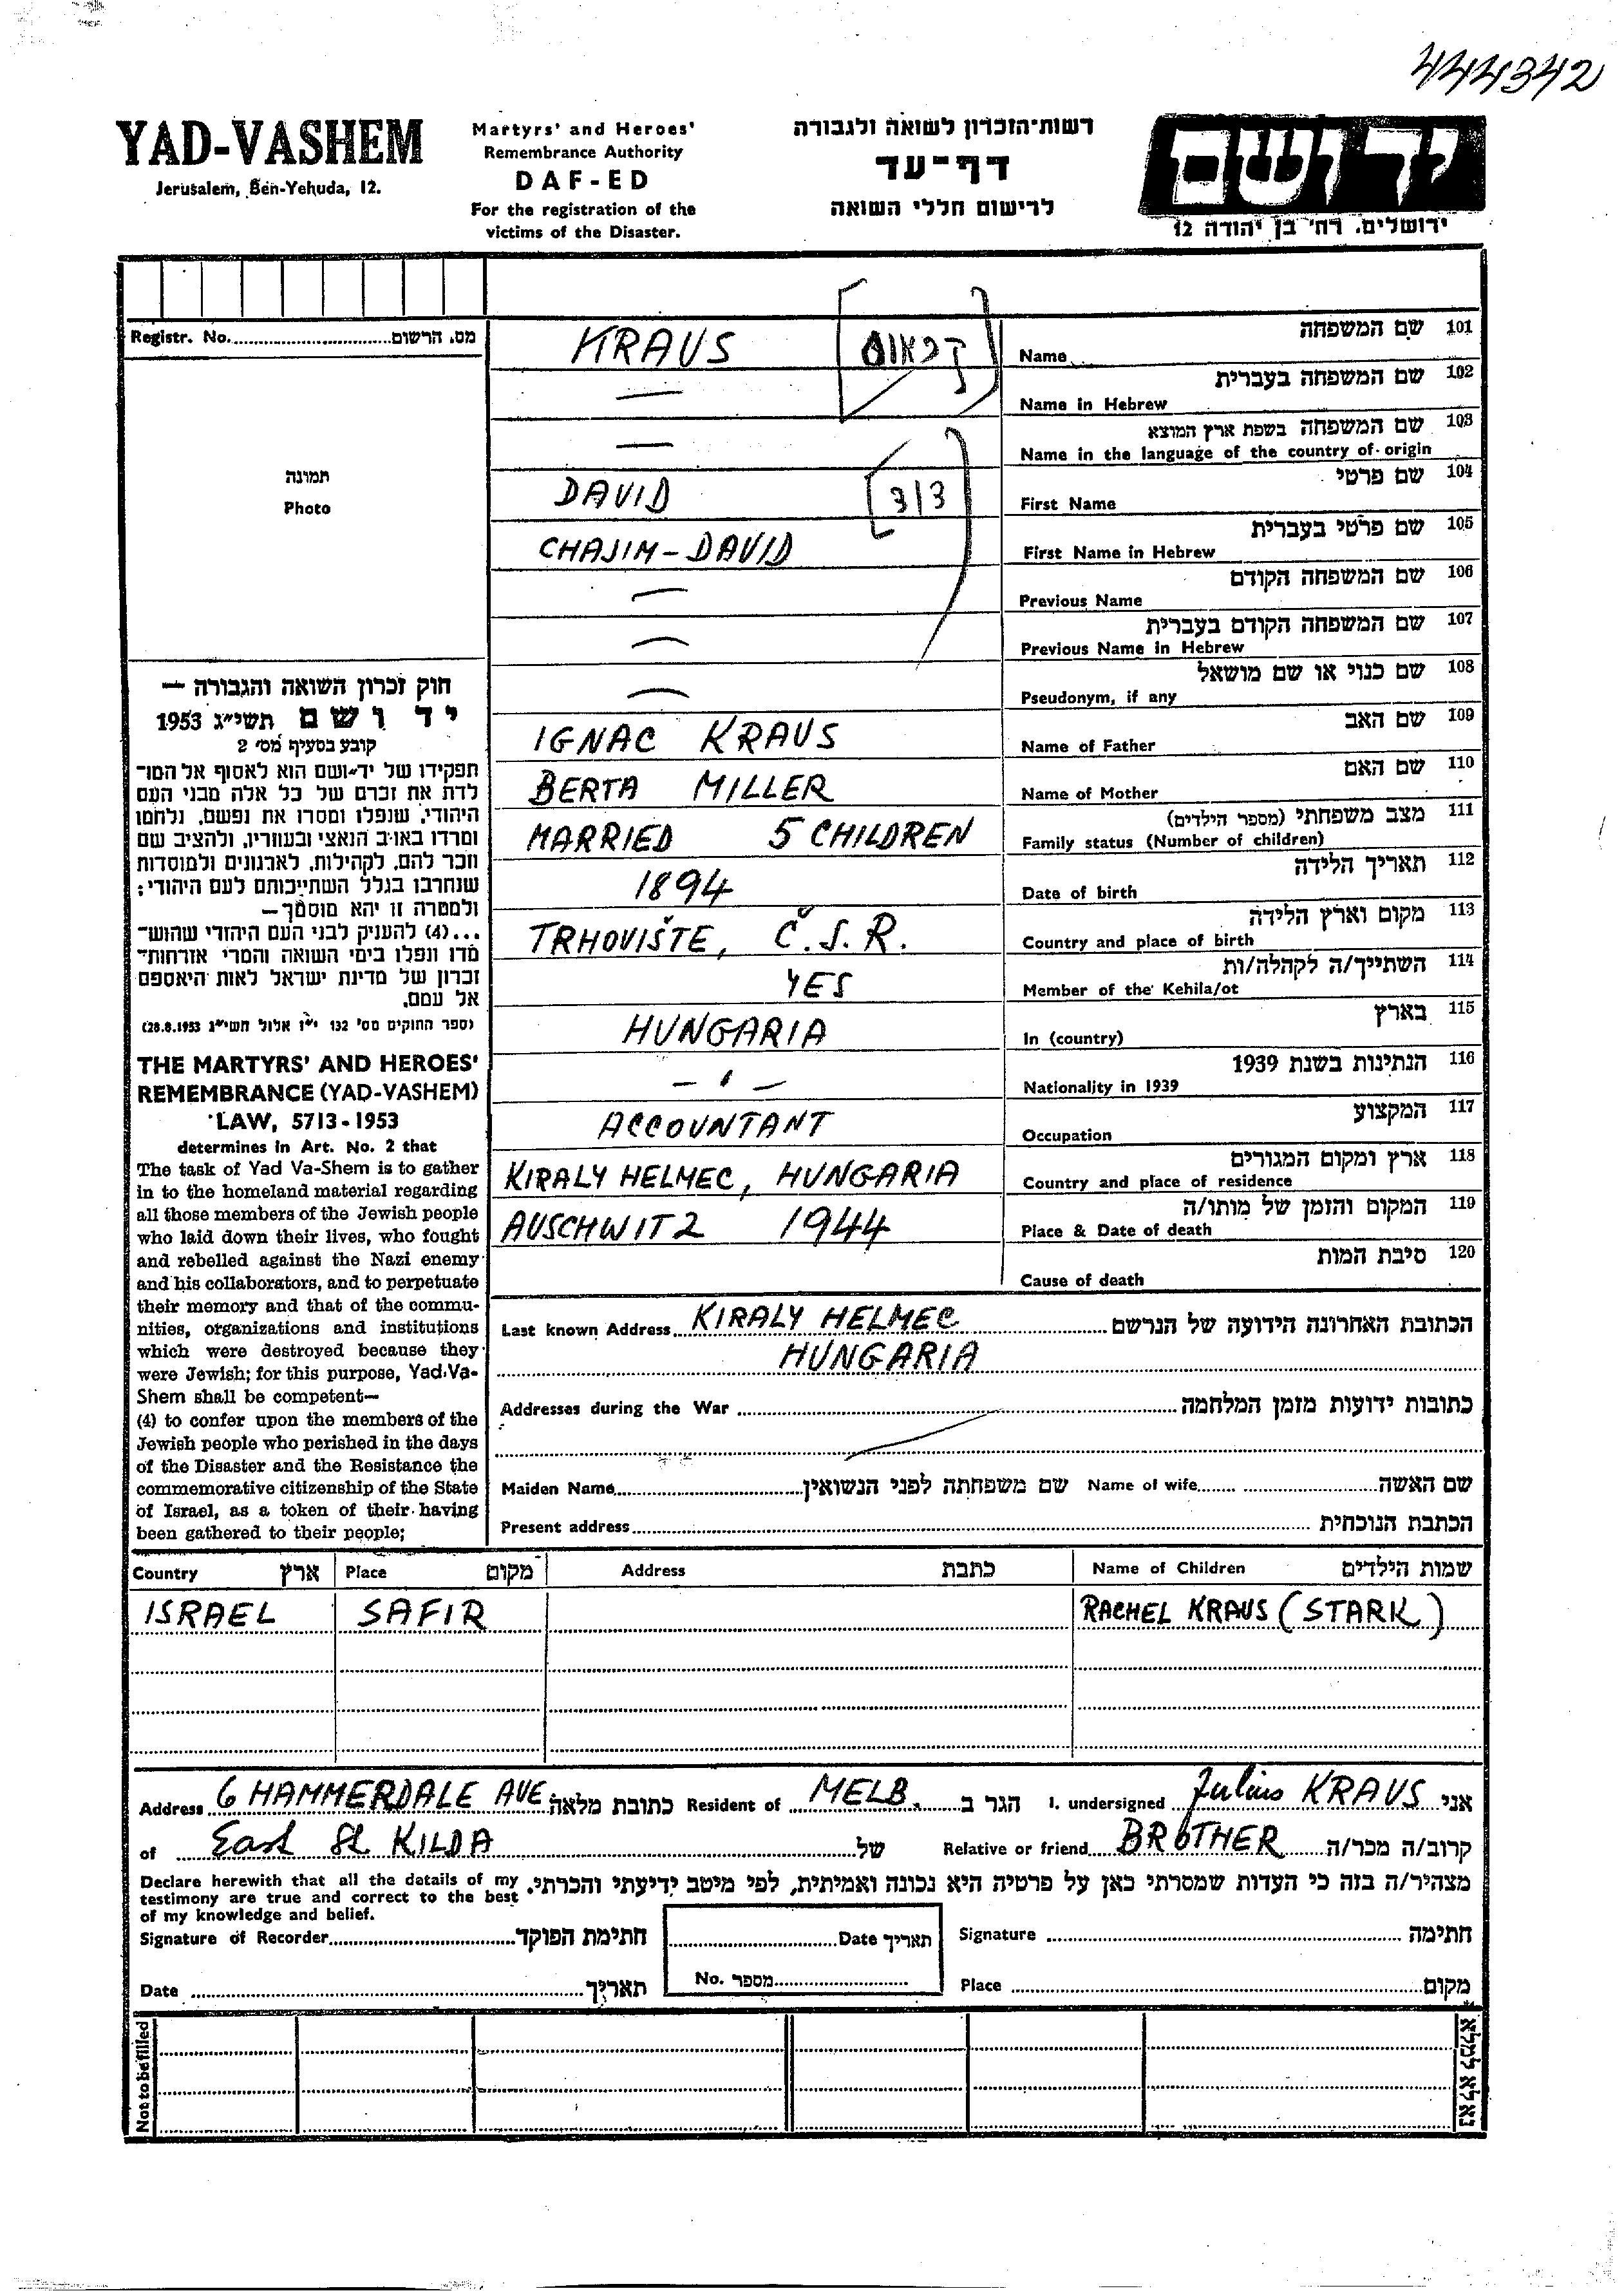 444342
YAD-VASHEM
Jerusalem, Ben-Yehuda, 12.
Martyrs' and Heroes'
Remembrance Authority
DAF-ED
For the registration of the
victims of the Disaster.
רשות-הזכרון לשואה ולגבורה
דף-עד
לרישום חללי השואה
יד ושם
ירושלים, רח' בן יהודה 12
Registr. No. מס. הרשום
תמונה
Photo
חוק זכרון השואה והגבורה —
יד ושם תשי״ג 1953
קובע בסעיף מס׳ 2
תפקידו של יד-ושם הוא לאסוף אל המו־
לדת את זכרם של כל אלה מבני העם
היהודי, שנפלו ומסרו את נפשם, נלחמו
ומרדו באויב הנאצי ובעוזריו, ולהציב שם
וזכר להם, לקהילות, לארגונים ולמוסדות
שנחרבו בגלל השתייכותם לעם היהודי;
ולמטרה זו יהא מוסמך—
...(4) להעניק לבני העם היהודי שהוש־
מדו ונפלו בימי השואה והמרי אזרחות־
זכרון של מדינת ישראל לאות היאספם
אל עמם.
(ספר החוקים מס׳ 132 י״ז אלול תשי״ג 28.8.1953)
THE MARTYRS' AND HEROES'
REMEMBRANCE (YAD-VASHEM)
LAW, 5713-1953
determines in Art. No. 2 that
The task of Yad Va-Shem is to gather
in to the homeland material regarding
all those members of the Jewish people
who laid down their lives, who fought
and rebelled against the Nazi enemy
and his collaborators, and to perpetuate
their memory and that of the commu-
nities, organizations and institutions
which were destroyed because they
were Jewish; for this purpose, Yad-Va-
Shem shall be competent—
(4) to confer upon the members of the
Jewish people who perished in the days
of the Disaster and the Resistance the
commemorative citizenship of the State
of Israel, as a token of their having
been gathered to their people;
KRAUS [קראוס] Name שם המשפחה 101
— Name in Hebrew שם המשפחה בעברית 102
— Name in the language of the country of origin שם המשפחה בשפת ארץ המוצא 103
DAVID [דוד] First Name שם פרטי 104
CHAJIM-DAVID First Name in Hebrew שם פרטי בעברית 105
— Previous Name שם המשפחה הקודם 106
— Previous Name in Hebrew שם המשפחה הקודם בעברית 107
— Pseudonym, if any שם כנוי או שם מושאל 108
IGNAC KRAUS Name of Father שם האב 109
BERTA MILLER Name of Mother שם האם 110
MARRIED 5 CHILDREN Family status (Number of children) מצב משפחתי (מספר הילדים) 111
1894 Date of birth תאריך הלידה 112
TRHOVIŠTE, Č.S.R. Country and place of birth מקום וארץ הלידה 113
YES Member of the Kehila/ot השתייך/ה לקהלה/ות 114
HUNGARIA In (country) בארץ 115
— ı — Nationality in 1939 הנתינות בשנת 1939 116
ACCOUNTANT Occupation המקצוע 117
KIRALY HELMEC, HUNGARIA Country and place of residence ארץ ומקום המגורים 118
AUSCHWITZ 1944 Place & Date of death המקום והזמן של מותו/ה 119
Cause of death סיבת המות 120
Last known Address KIRALY HELMEC הכתובת האחרונה הידועה של הנרשם
HUNGARIA
Addresses during the War כתובות ידועות מזמן המלחמה
Maiden Name שם משפחתה לפני הנשואין Name of wife שם האשה
Present address הכתבת הנוכחית
Country ארץ Place מקום Address כתבת Name of Children שמות הילדים
ISRAEL SAFIR RACHEL KRAUS (STARK)
Address 6 HAMMERDALE AVE. כתובת מלאה Resident of MELB. הגר ב I. undersigned Julius KRAUS אני
of East St KILDA של Relative or friend BROTHER קרוב/ה מכר/ה
Declare herewith that all the details of my
testimony are true and correct to the best
of my knowledge and belief.
מצהיר/ה בזה כי העדות שמסרתי כאן על פרטיה היא נכונה ואמיתית, לפי מיטב ידיעתי והכרתי.
Signature of Recorder חתימת הפוקד Date תאריך Signature חתימה
Date תאריך No. מספר Place מקום
Not to be filled
נא לא למלא